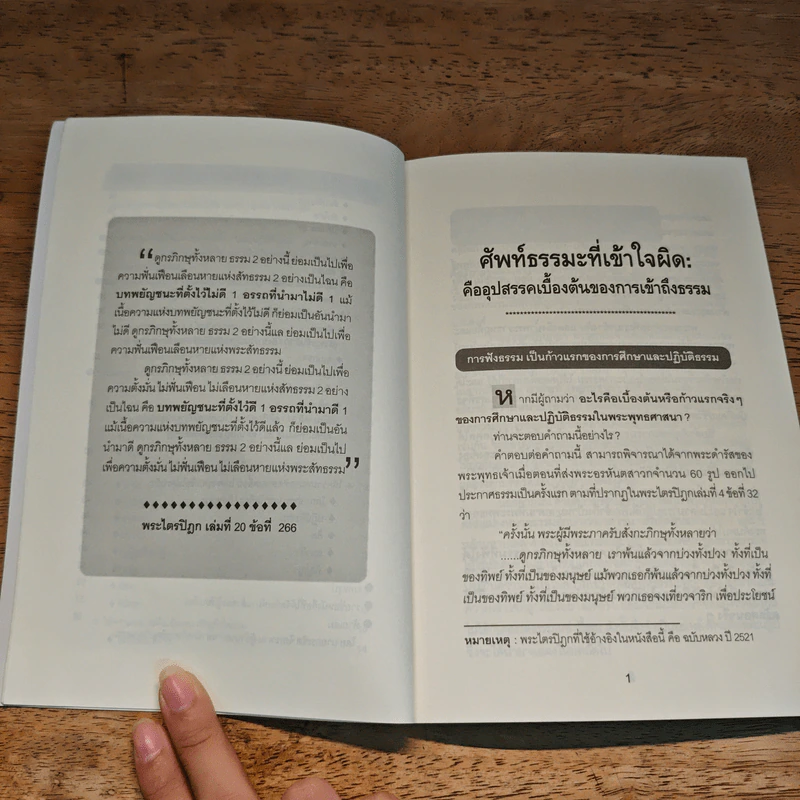 “ดูกรภิกษุทั้งหลาย ธรรม 2 อย่างนี้ ย่อมเป็นไปเพื่อ
ความฟั่นเฟือนเลือนหายแห่งสัทธรรม 2 อย่างเป็นไฉน คือ
บทพยัญชนะที่ตั้งไว้ไม่ดี 1 อรรถที่นำมาไม่ดี 1 แม้
เนื้อความแห่งบทพยัญชนะที่ตั้งไว้ไม่ดี ก็ย่อมเป็นอันนำมา
ไม่ดี ดูกรภิกษุทั้งหลาย ธรรม 2 อย่างนี้แล ย่อมเป็นไปเพื่อ
ความฟั่นเฟือนเลือนหายแห่งพระสัทธรรม
ดูกรภิกษุทั้งหลาย ธรรม 2 อย่างนี้ ย่อมเป็นไปเพื่อ
ความตั้งมั่น ไม่ฟั่นเฟือน ไม่เลือนหายแห่งสัทธรรม 2 อย่าง
เป็นไฉน คือ บทพยัญชนะที่ตั้งไว้ดี 1 อรรถที่นำมาดี 1
แม้เนื้อความแห่งบทพยัญชนะที่ตั้งไว้ดีแล้ว ก็ย่อมเป็นอัน
นำมาดี ดูกรภิกษุทั้งหลาย ธรรม 2 อย่างนี้แล ย่อมเป็นไป
เพื่อความตั้งมั่น ไม่ฟั่นเฟือน ไม่เลือนหายแห่งพระสัทธรรม”
พระไตรปิฎก เล่มที่ 20 ข้อที่ 266
ศัพท์ธรรมะที่เข้าใจผิด:
คืออุปสรรคเบื้องต้นของการเข้าถึงธรรม
การฟังธรรม เป็นก้าวแรกของการศึกษาและปฏิบัติธรรม
หากมีผู้ถามว่า อะไรคือเบื้องต้นหรือก้าวแรกจริงๆ
ของการศึกษาและปฏิบัติธรรมในพระพุทธศาสนา?
ท่านจะตอบคำถามนี้อย่างไร?
คำตอบต่อคำถามนี้ สามารถพิจารณาได้จากพระดำรัสของ
พระพุทธเจ้าเมื่อตอนที่ส่งพระอรหันตสาวกจำนวน 60 รูป ออกไป
ประกาศธรรมเป็นครั้งแรก ตามที่ปรากฏในพระไตรปิฎกเล่มที่ 4 ข้อที่ 32
ว่า
“ครั้งนั้น พระผู้มีพระภาครับสั่งกะภิกษุทั้งหลายว่า
......ดูกรภิกษุทั้งหลาย เราพ้นแล้วจากบ่วงทั้งปวง ทั้งที่เป็น
ของทิพย์ ทั้งที่เป็นของมนุษย์ แม้พวกเธอก็พ้นแล้วจากบ่วงทั้งปวง ทั้งที่
เป็นของทิพย์ ทั้งที่เป็นของมนุษย์ พวกเธอจงเที่ยวจาริก เพื่อประโยชน์
หมายเหตุ : พระไตรปิฎกที่ใช้อ้างอิงในหนังสือนี้ คือ ฉบับหลวง ปี 2521
1